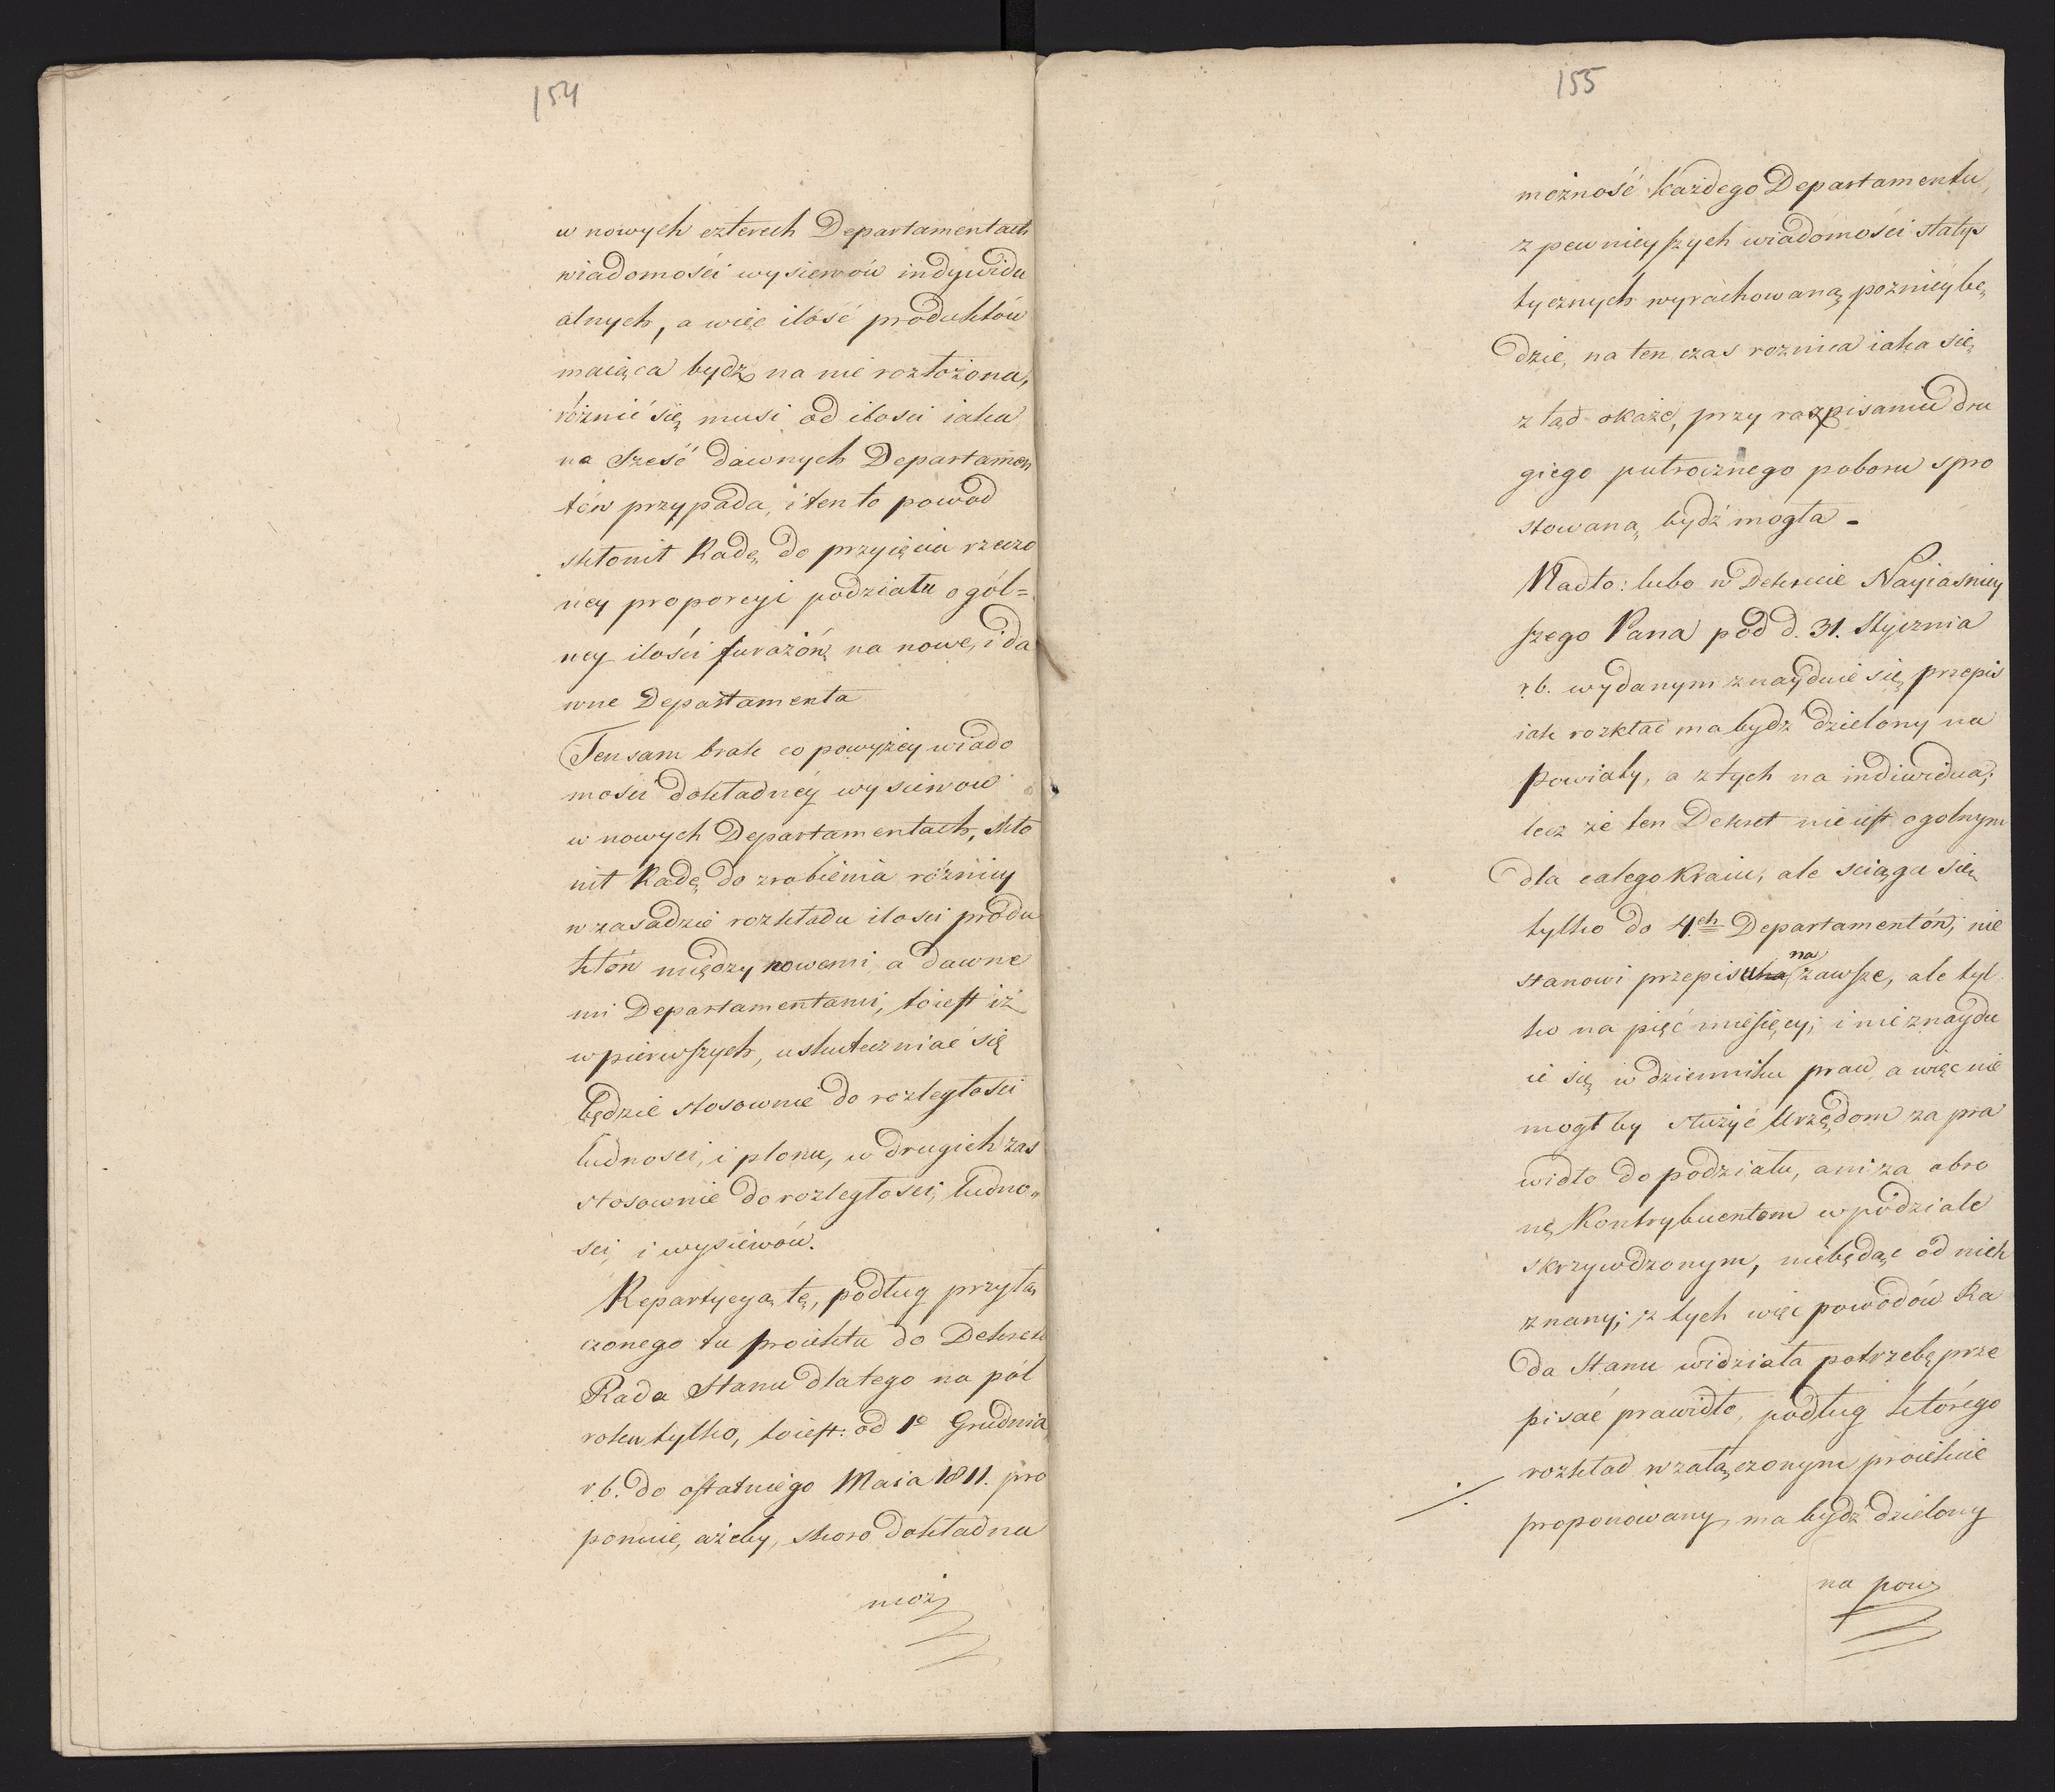 154
w nowych czterech Departamentach
wiadomości wysiewów indywidu
alnych, a więc ilość produktów
maiąca bydź na nie rozłożona,
różnić się musi od ilosci iaka
na sześć dawnych Departamen
tów przypada, i ten to powod
skłonił Radę do przyięcia rzeczo
ney proporcyi podziału ogól=
ney ilości furażów na nowe, i da
wne Departamenta
Ten sam brak co powyżey wiado
mości dokładnéy wysiewow
w nowych Departamentach, skło
nił Radę do zrobienia różnicy
w zasadzie rozkładu ilosci produ
któw między nowemi, a dawne
mi Departamentami, toiest iż
w pierwszych, uskuteczniać się
będzie stosownie do rozległosci
ludnosci, i plonu, w drugich zas
stosownie do rozległosci, ludno=
sci, i wysiewów.
Repartycyą tę, podług przyłą
czonego tu proiektu do Dekretu
Rada Stanu dlatego na pół
roku tylko, toiest: od 1o Grudnia
r. b. do ostatniego Maia 1811. pro
ponuie, ażeby, skoro dokładna
moż
155
możność każdego Departamentu,
z pewnieyszych wiadomości statys
tycznych wyrachowaną pozniéy bę
dzie, na ten czas roznica iaka się
z tąd okaże, przy rozpisaniu dru
giego pułrocznego poboru spro
stowaną bydź mogła -
Nadto: lubo w Dekrecie Nayiasniey
szego Pana pod d. 31. Stycznia
r. b. wydanym znayduie się przepis
iak rozkład ma bydz dzielony na
powiaty, a z tych na indiwidua;
lecz że ten Dekret nie iest ogolnym
dla całego Kraiu, ale sciąga się
tylko do 4ch Departamentów; nie
na
stanowi przepisu na zawsze, ale tyl
ko na pięć miesięcy; i nie znaydu
ie się w dzienniku praw, a więc nie
mogł by służyć Urzędom za pra
widło do podziału, ani za obro
nę Kontrybuentom w podziale
skrzywdzonym, niebędąc od nich
znany; z tych więc powodów Ra
da Stanu widziała potrzebę prze
pisać prawidło, podług którego
rozkład w załączonym proiekcie
proponowany, ma bydź dzielony
na pow